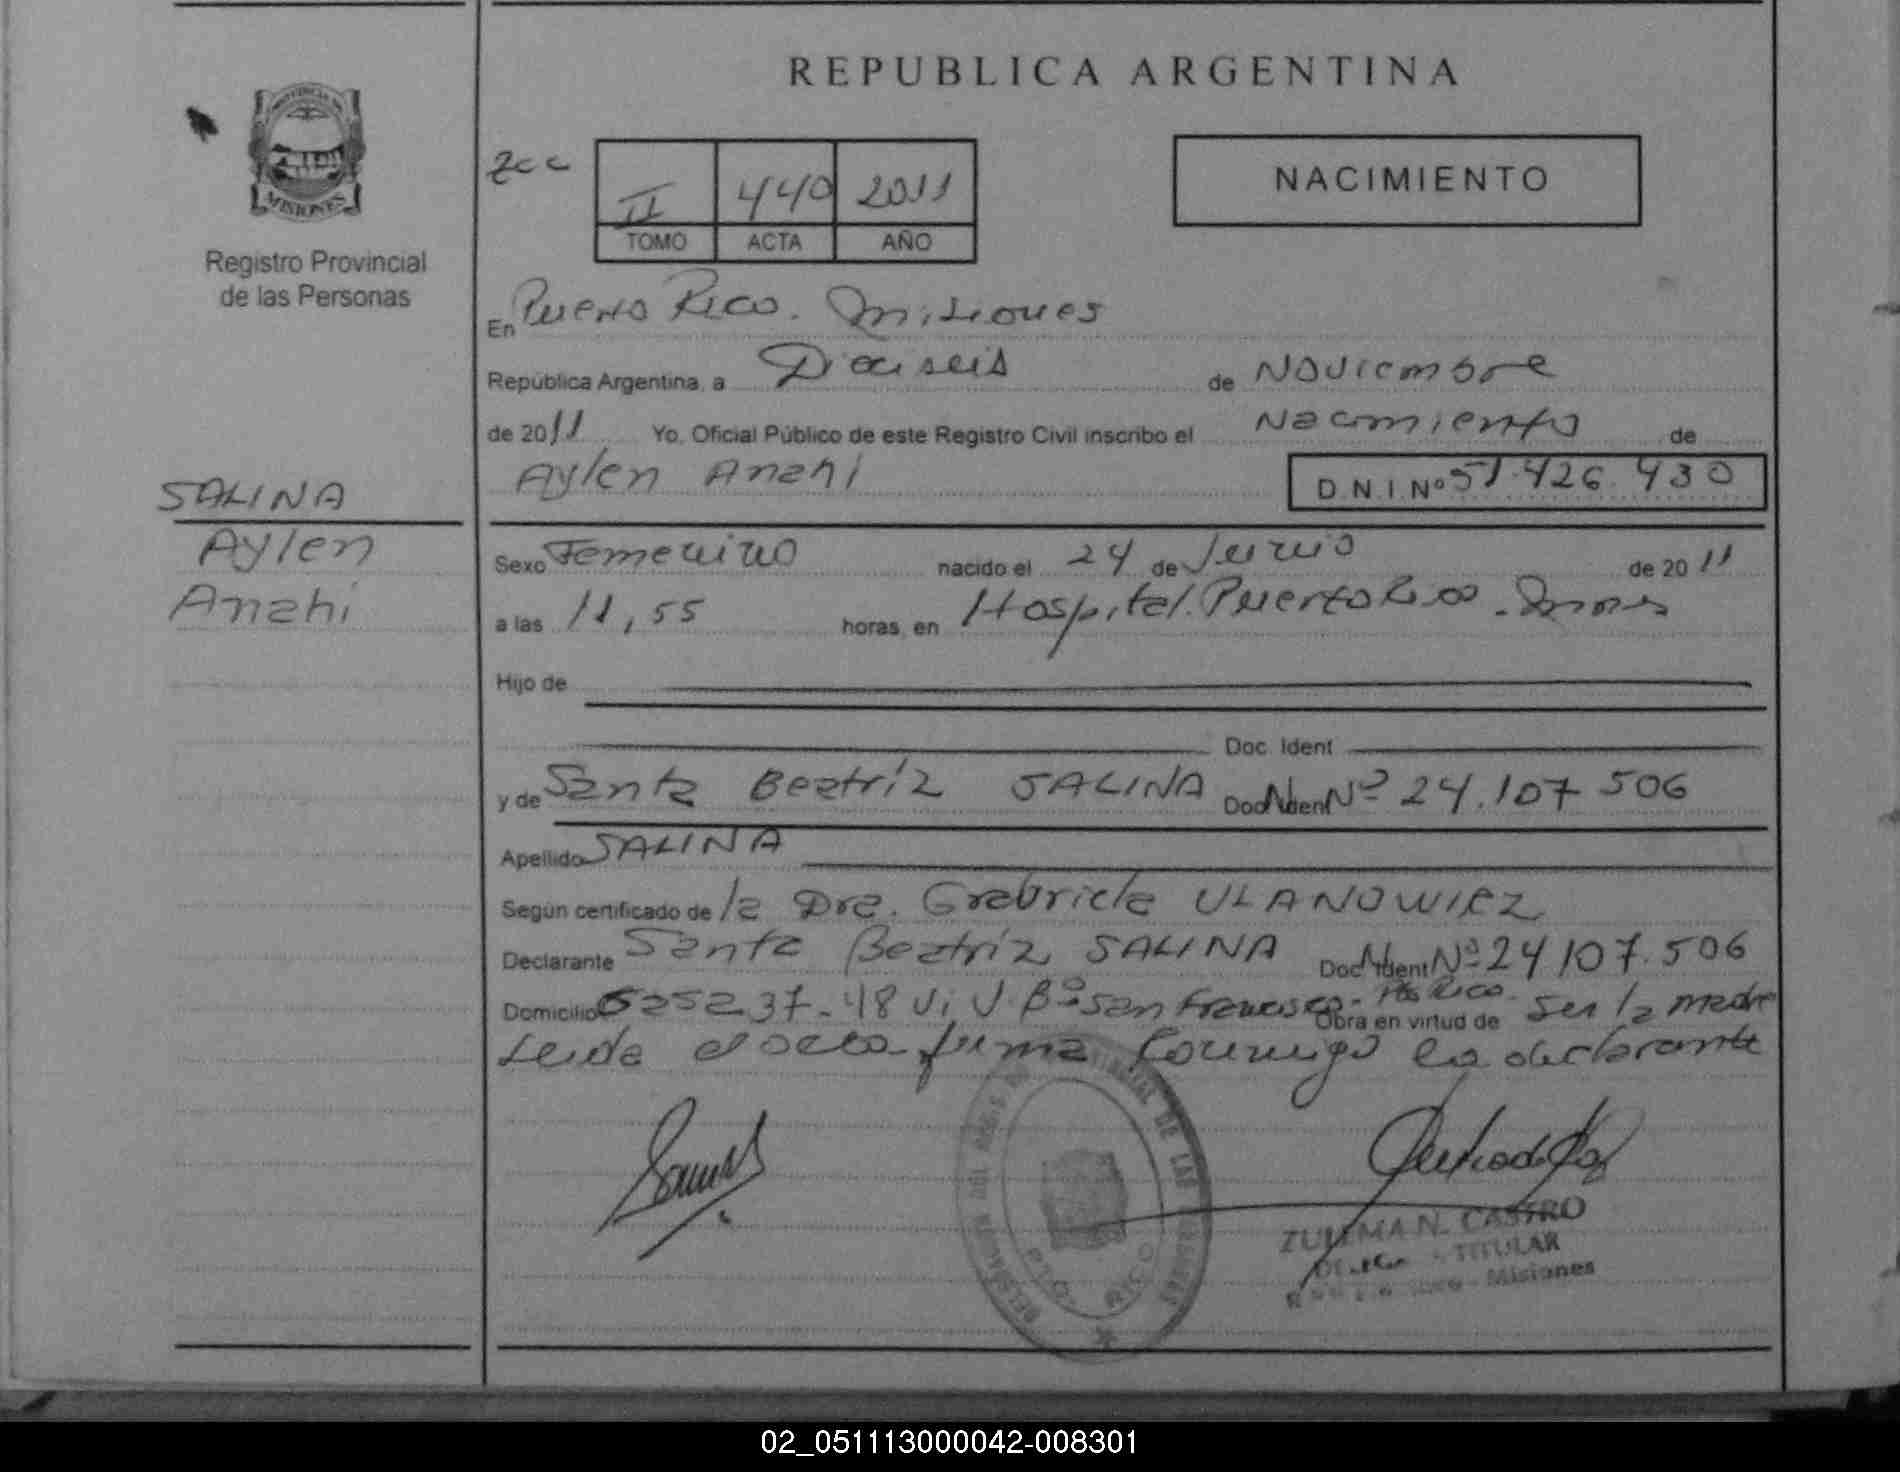 REPUBLICA ARGENTINA
PROVINCIA DE
MISIONES
Registro Provincial
de las Personas
zcc
II 440 2011
TOMO ACTA AÑO
NACIMIENTO
En Puerto Rico. Misiones
República Argentina, a Dieciseis de Noviembre
de 2011 Yo, Oficial Público de este Registro Civil inscribo el Nacimiento de
Aylen Anahi D.N.I. Nº 51.426.430
SALINA
Aylen
Anahi
Sexo Femenino nacido el 24 de Junio de 2011
a las 11,55 horas, en Hospital. Puerto Rico - Mnes
Hijo de
Doc. Ident
y de Santa Beatríz SALINA Doc. Ident Nº 24.107 506
Apellido SALINA
Según certificado de la Dra. Gabriela ULANOWIEZ
Declarante Santa Beatríz SALINA Doc. Ident Nº 24107.506
Domicilio Casa 37-48 Viv. Bº San Francisco - Pto Rico. Obra en virtud de ser la madre
Leida el acta firma conmigo la declarante
DE LAS
PTO. RICO
ZULEMA N. CASTRO
TITULAR
- Misiones
02_051113000042-008301